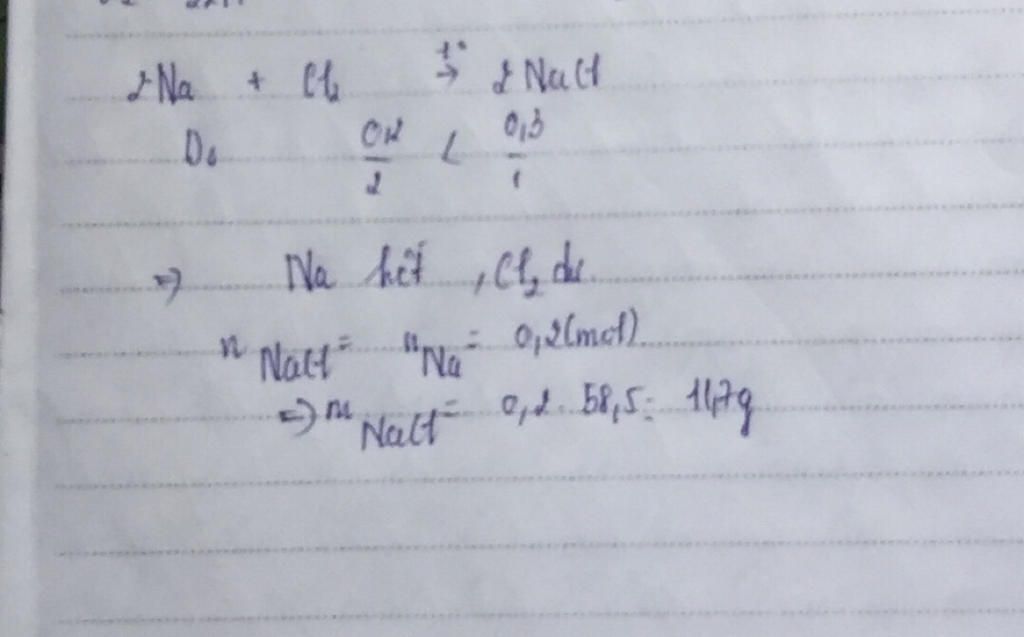 2Na + Cl₂ t°→ 2NaCl
Do 0,2/2 < 0,3/1
=> Na hết, Cl₂ dư.
n NaCl = n Na = 0,2(mol)
=> m NaCl = 0,2. 58,5 = 11,7g